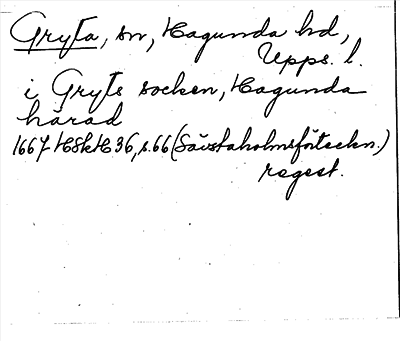 Gryta, sn, Hagunda hd,
Upps. l.
i Gryts socken, Hagunda
härad
1667 HSkH 36, s. 66 (Sävstaholmsförteckn.)
regest.